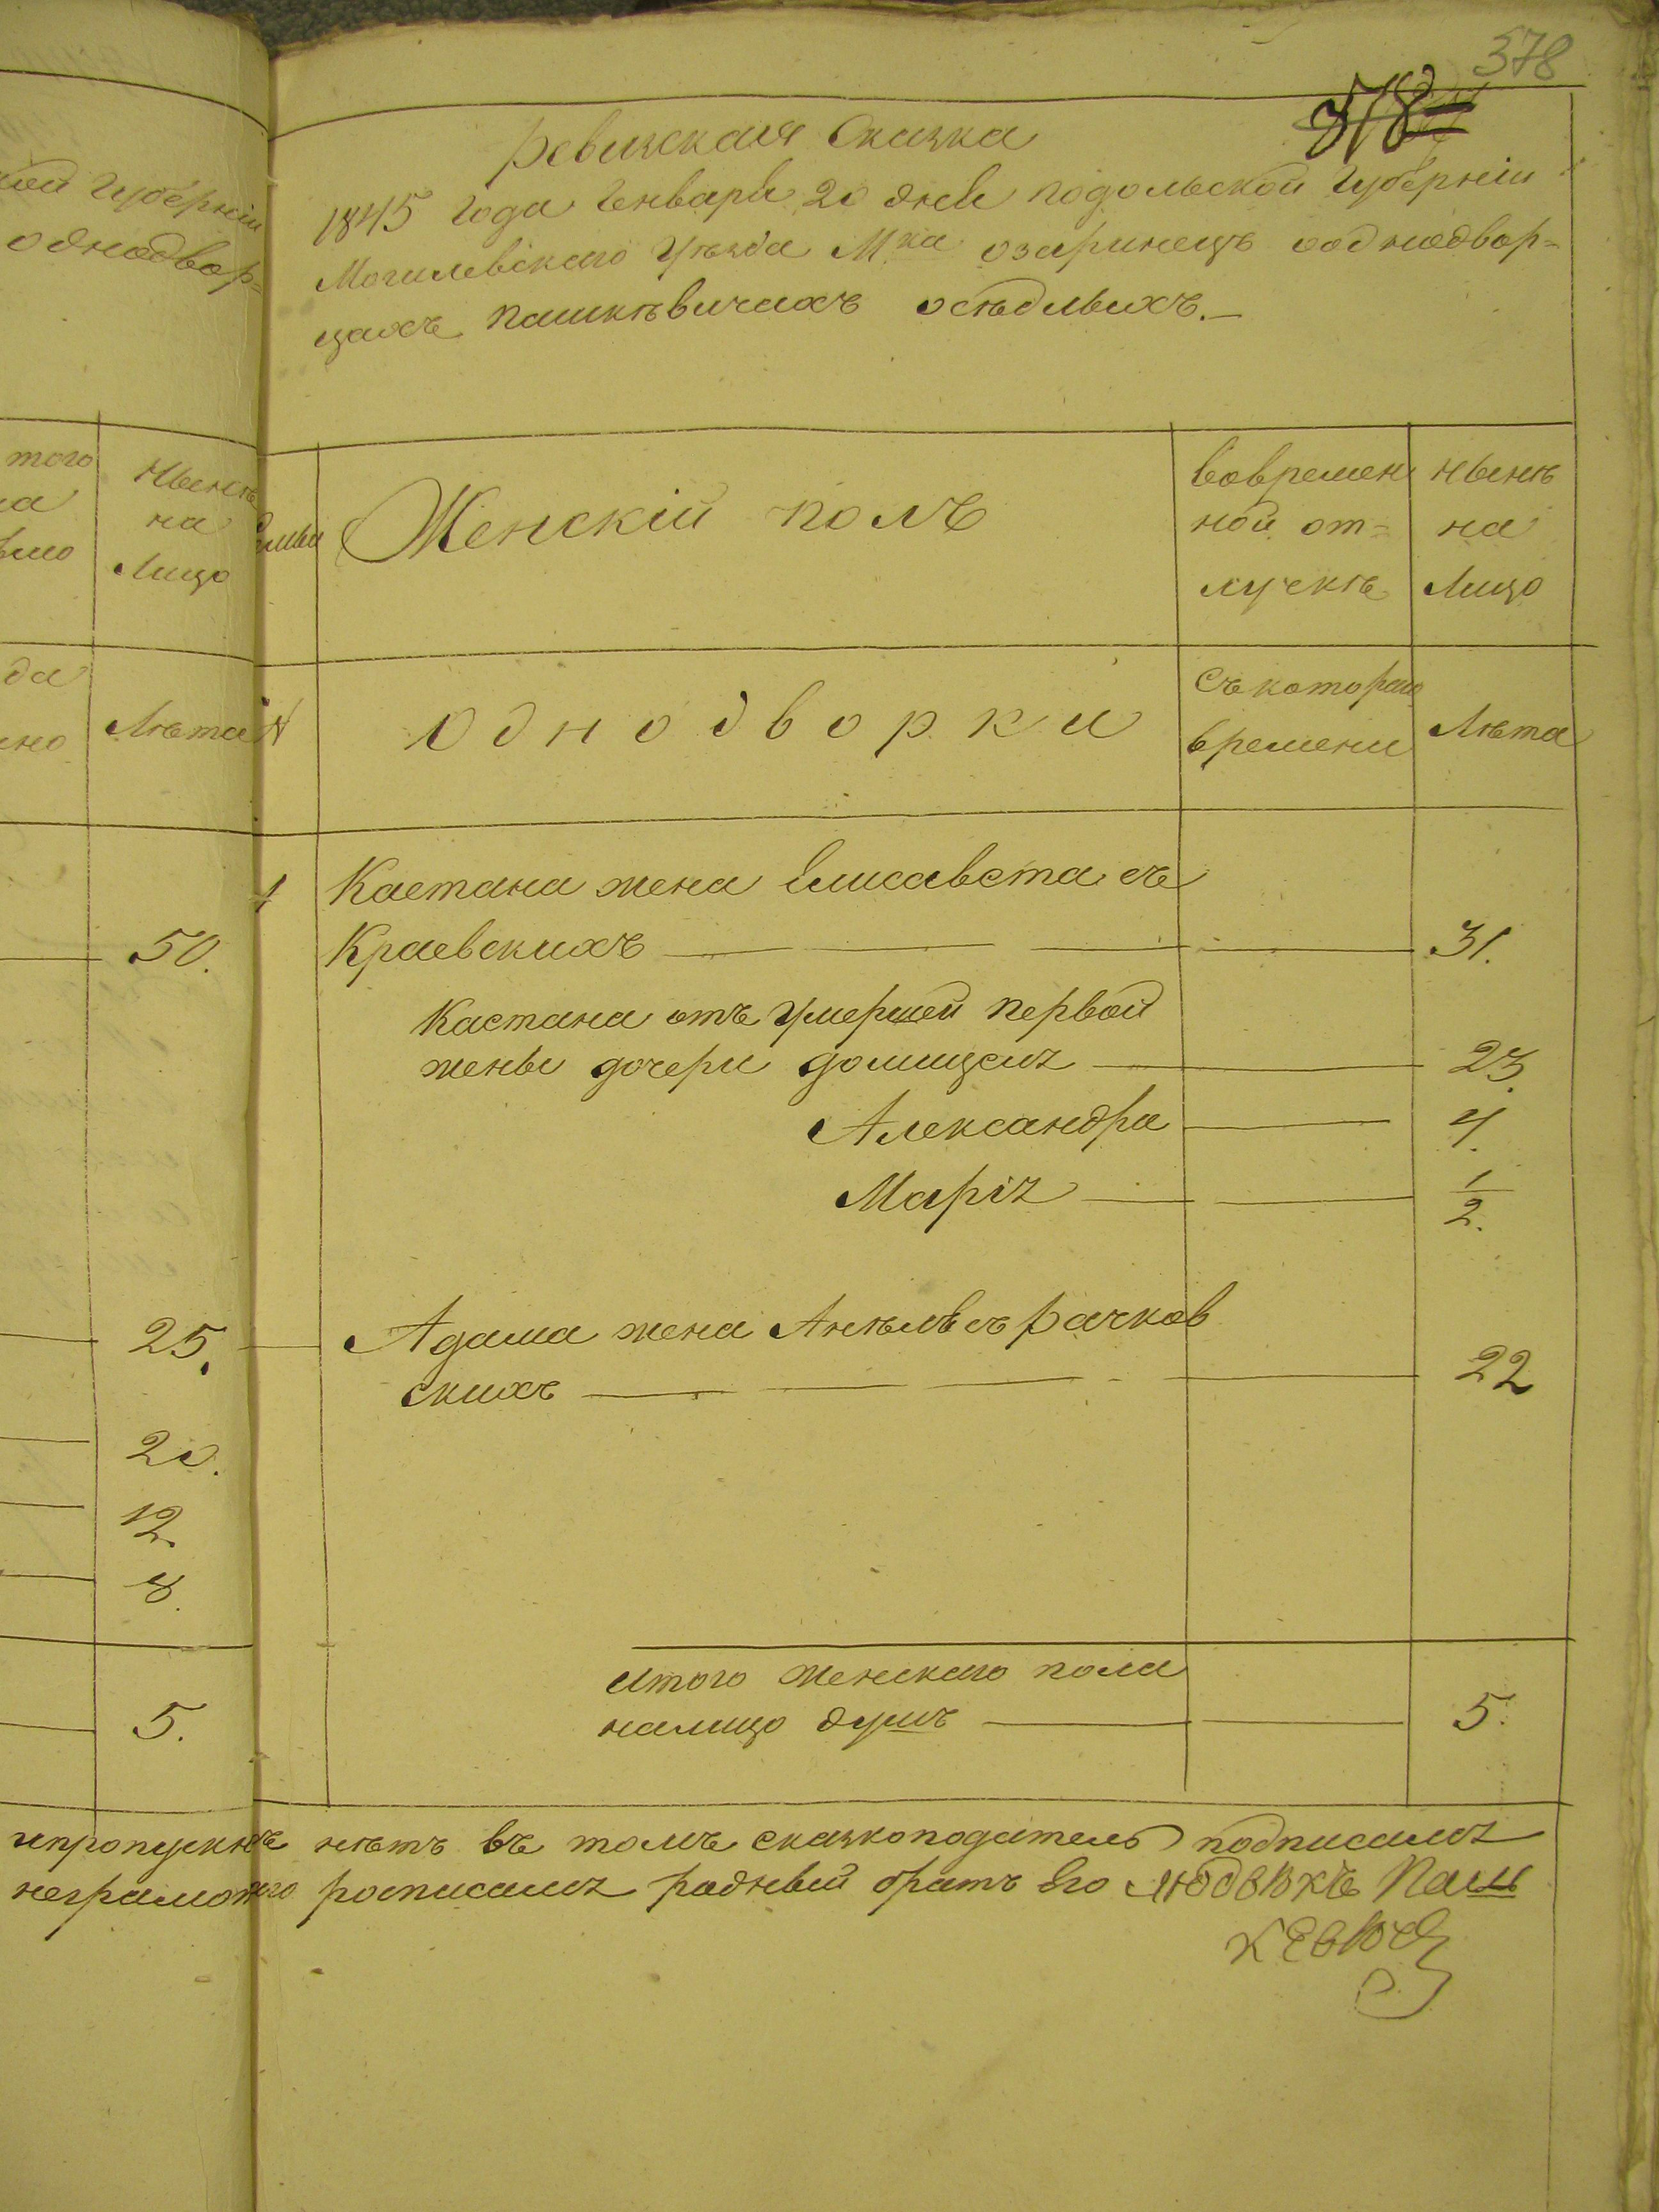 378
378
Ревизская Сказка
1845 года Генваря 20 дня подольской Губерніи
Могилевского Уѣзда М.ка озаринецъ ооднодвор=
цахъ пашкѣвичахъ осѣдлыхъ.—
кой Губерніи
однодвор=
того
Нынѣ
на
Лицо
Лѣта
Женскій полъ
вовремен
ной от=
лучкѣ
нынѣ
на
Лицо
N
Однодворки
съ котораго
времени
Лѣта
1 Каетана жена Елисавета съ
50. Краевскихъ 31.
Каетана отъ умершей первой
жены дочери домицеля 23.
Александра 4.
Марія 1/2.
25. Адама жена Анѣля съ Рачков
скихъ 22
20.
12
8.
итого женскаго пола
5. налицо душъ 5.
ипропускнѣ нѣтъ въ томъ сказкоподатель подписался
неграмотного росписался родный братъ Его людвикъ Паш
кевич